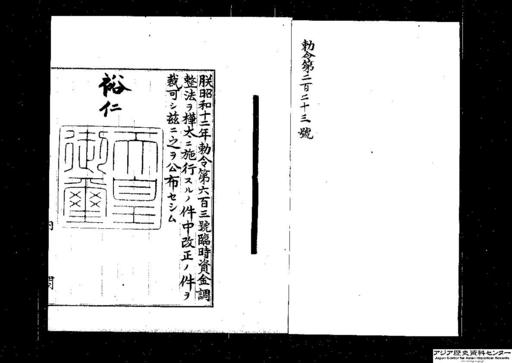 勅令第二百二十三號
朕昭和十二年勅令第六百三號臨時資金調
整法ヲ樺太ニ施行スルノ件中改正ノ件ヲ
裁可シ茲ニ之ヲ公布セシム
裕仁
天皇
御璽
内閣
アジア歴史資料センター
Japan Center for Asian Historical Records